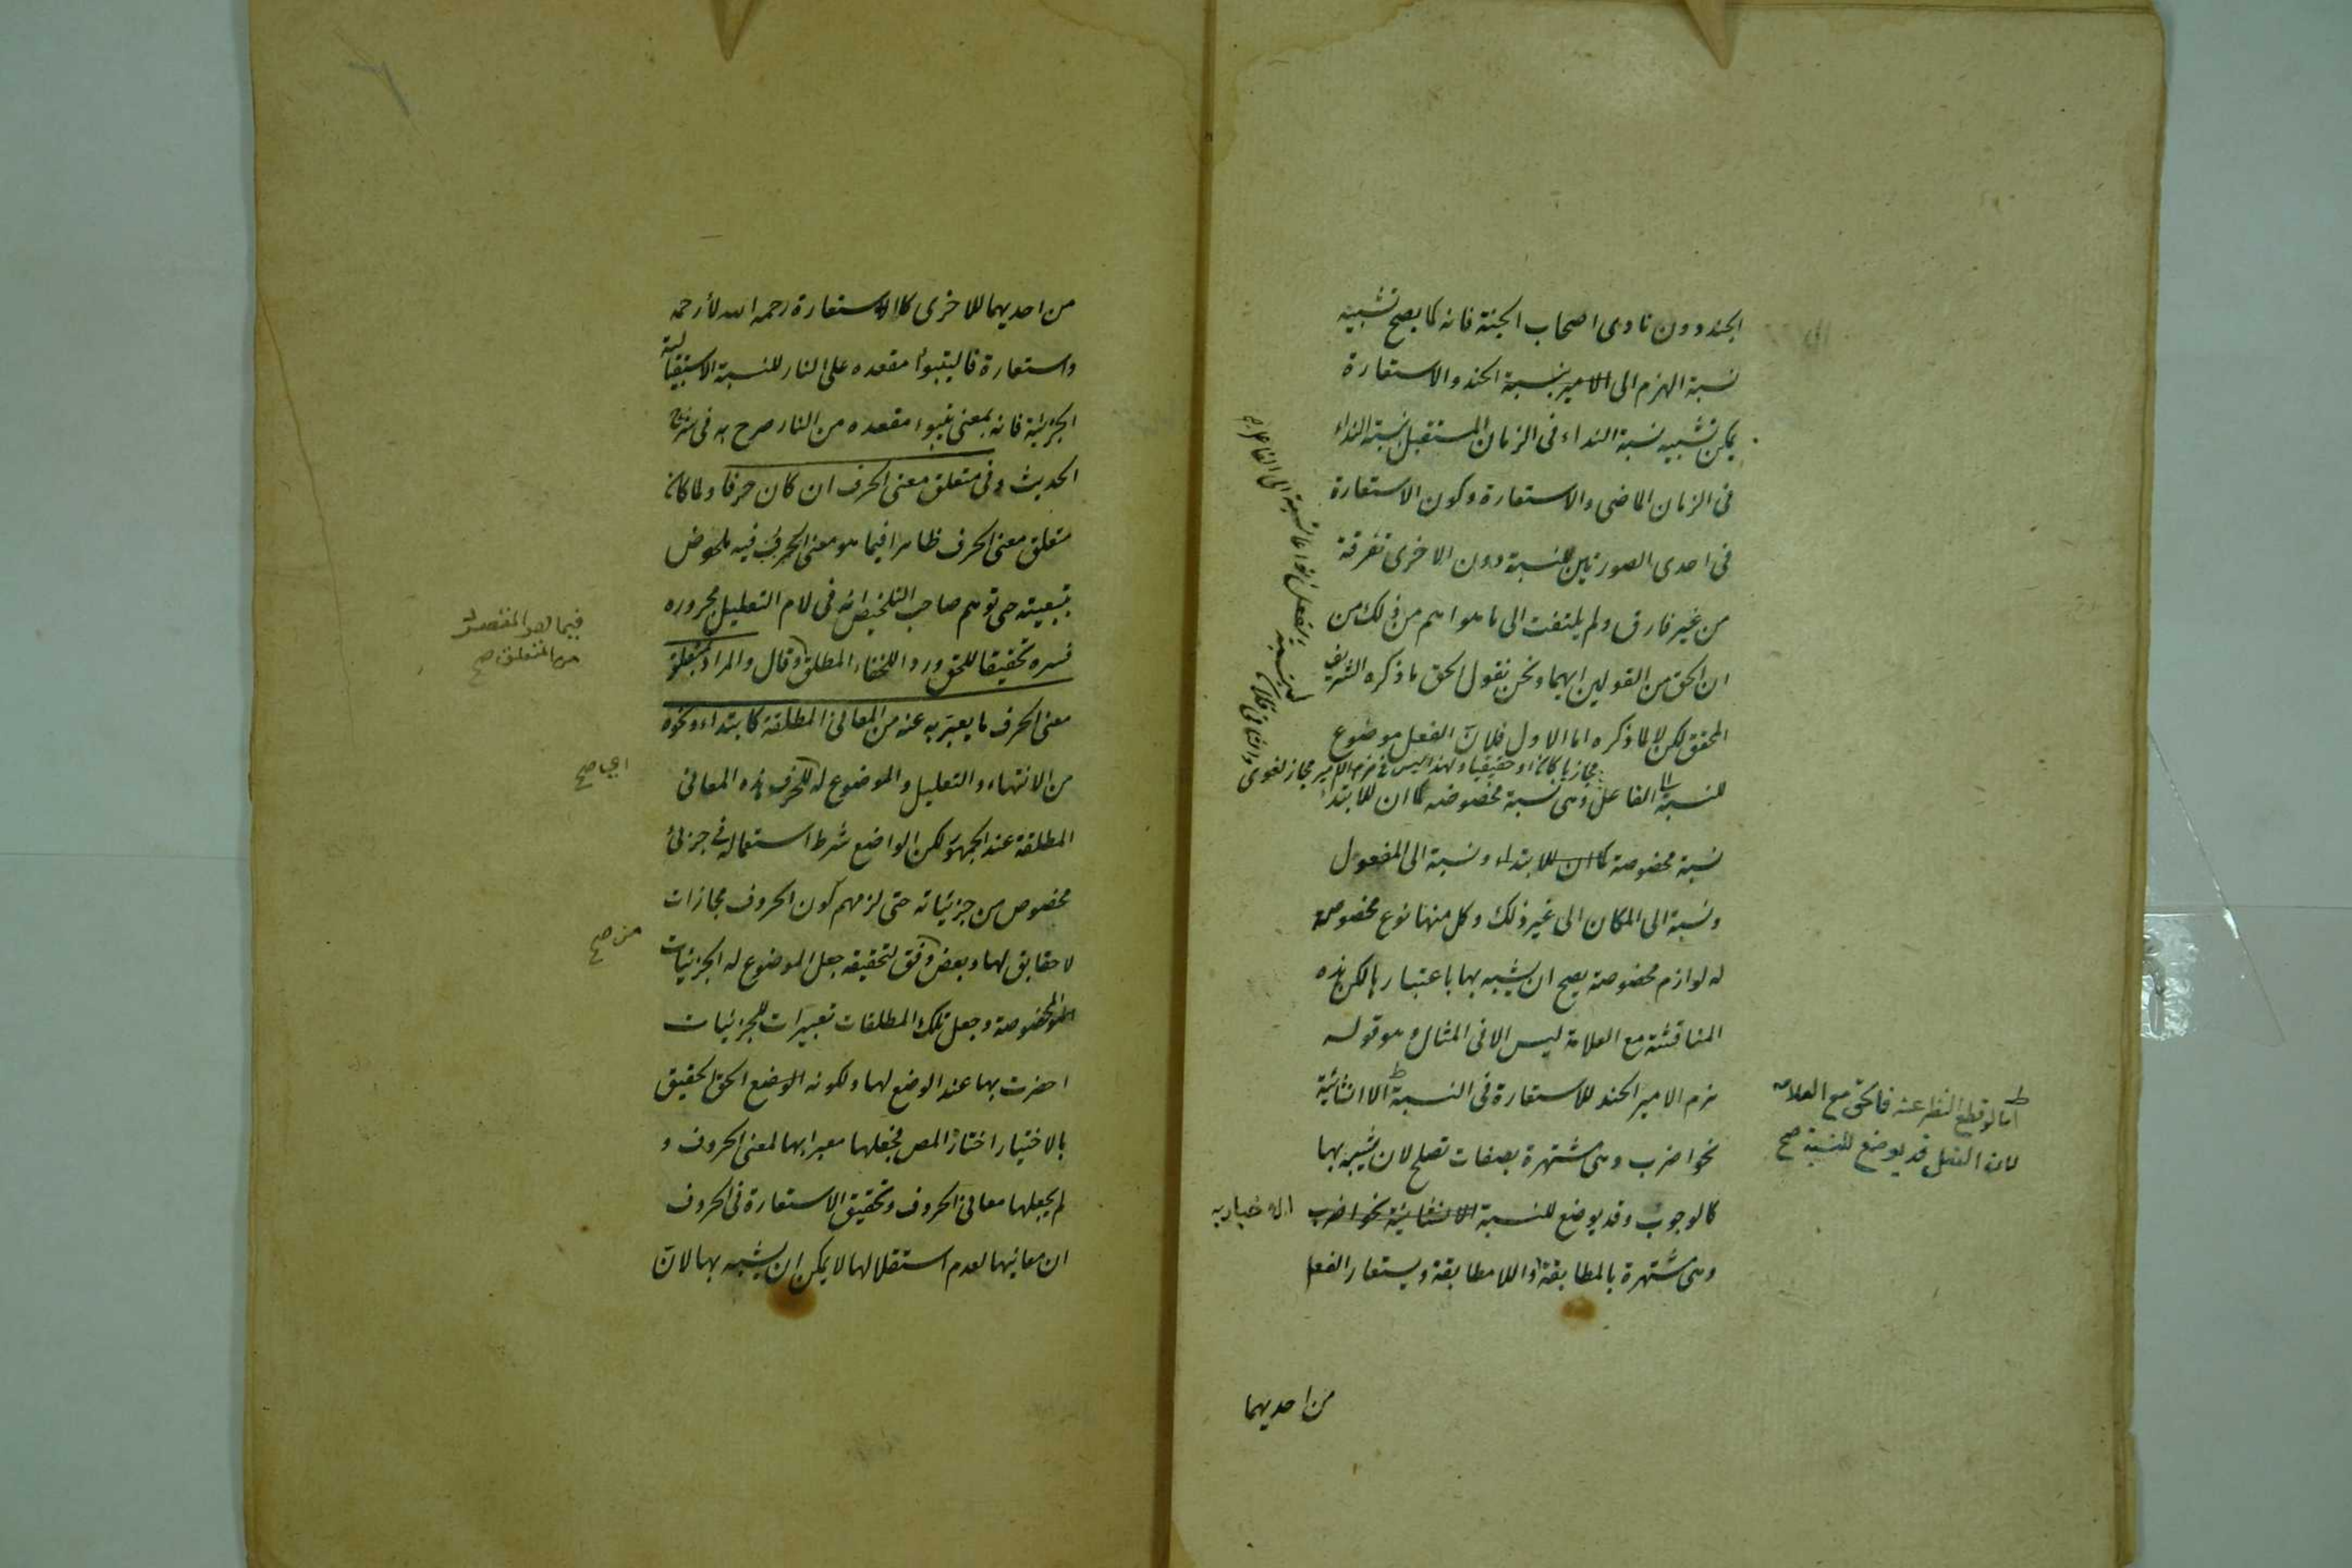 الجند دون نادى اصحاب الجنة فانه كما يصح تشبيه
نسبة الهزم الى الامير بنسبة الجند والاستعارة
يمكن تشبيه نسبة النداء فى الزمان المستقبل بنسبة النداء
فى الزمان الماضى والاستعارة وكون الاستعارة
فى احدى الصورتين للنسبة دون الاخرى تفرقة
من غير فارق ولم يلتفت الى ما هو اهم من ذلك من
ان الحق من القولين ايهما ونحن نقول الحق ما ذكره الشريف
المحقق لكن لا لما ذكره اما الاول فلان الفعل موضوع
للنسبة الى الفاعل وهى نسبة مخصوصه كما ان للابتداء
نسبة مخصوصة كما ان للابتداء ونسبة الى المفعول
ونسبة الى المكان الى غير ذلك وكل منها نوع مخصوصة
له لوازم مخصوصة يصح ان يشبه بها باعتبارها لكن هذه
المناقشة مع العلامة ليس الا فى المثال وهو قوله
هزم الامير الجند للاستعارة فى النسبة الا انشائية
نحو اضرب وهى مشتهرة بصفات تصلح لان يشبه بها
كالوجوب وقد يوضع للنسبة الانشائية نحو اضرب الاخباريه
وهى مشتهرة بالمطابقة واللامطابقة ويستعار الفعل
اما لو قطع النظر عنه فالحق مع العلامه
لان الفعل قد يوضع للنسبة صح
من احديهما
من احديهما للاخرى كالاستعارة رحمه الله لارحمه
واستعارة فاليتبوأ مقعده على النار للنسبة الاستقبالية
الجزئية فانه بمعنى يتبوء مقعده من النار صرح به فى شرح
الحديث وفى متعلق معنى الحرف ان كان حرفا ولما كان
متعلق معنى الحرف ظاهرا فيما هو معنى الحرف فيه ملحوض
بتبعيته حتى توهم صاحب التلخيص انه فى لام التعليل مجروره
فسره تحقيقا للحق وردا للخفاء المطلق وقال والمراد بمتعلق
معنى الحرف ما يعبر به عنه من المعانى المطلقة كابتداء ونحوه
من الانتهاء والتعليل والموضوع له للحرف هذه المعانى
المطلقة عند الجمهور لكن الواضع شرط استعماله فى جزئى
مخصوص من جزئياته حتى لزمهم كون الحروف مجازات
لا حقايق لها وبعض وفق لتحقيقه جعل الموضوع له الجزئيات
المخصوصة وجعل تلك المطلقات تعبيرات للجزئيات
احضرت بها عند الوضع لها ولكونه الوضع الحق الحقيق
بالاختيار اختار المص فجعلها معبرا بها لمعنى الحروف و
لم يجعلها معانى الحروف وتحقيق الاستعارة فى الحروف
ان معانيها لعدم استقلالها لا يمكن ان يشبه بها لان
من المتعلق صح
من صح